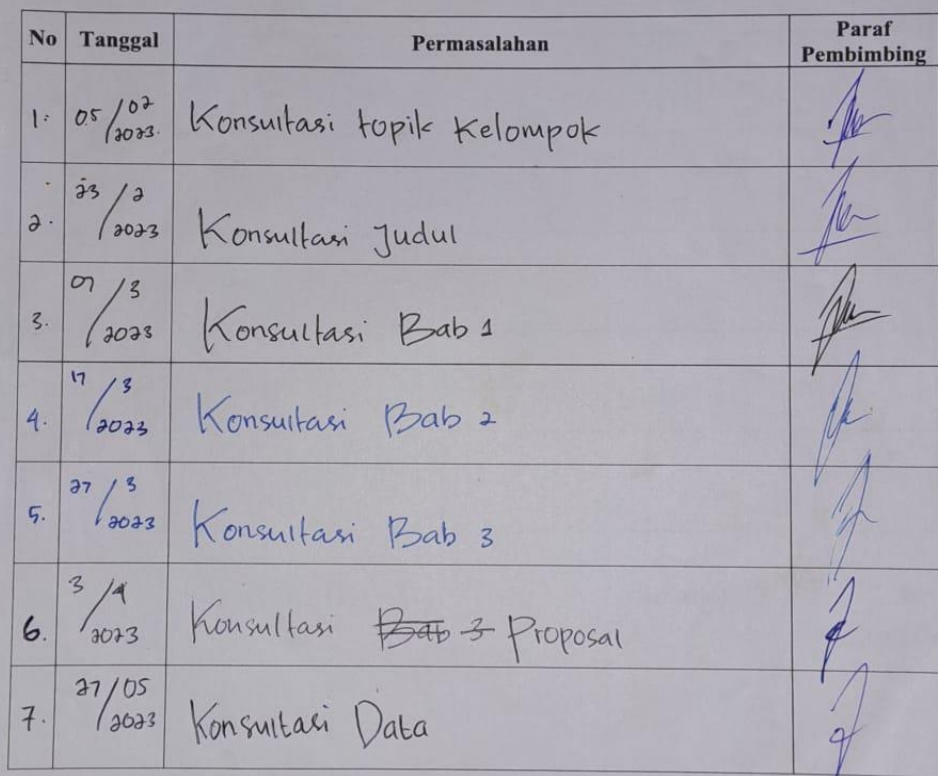 No Tanggal Permasalahan Paraf Pembimbing
1. 05/02 2023. Konsultasi topik Kelompok
2. 23/2 2023 Konsultasi Judul
3. 07/3 2023 Konsultasi Bab 1
4. 17/3 2023 Konsultasi Bab 2
5. 27/3 2023 Konsultasi Bab 3
6. 3/4 2023 Konsultasi Bab 3 Proposal
7. 27/05 2023 Konsultasi Data